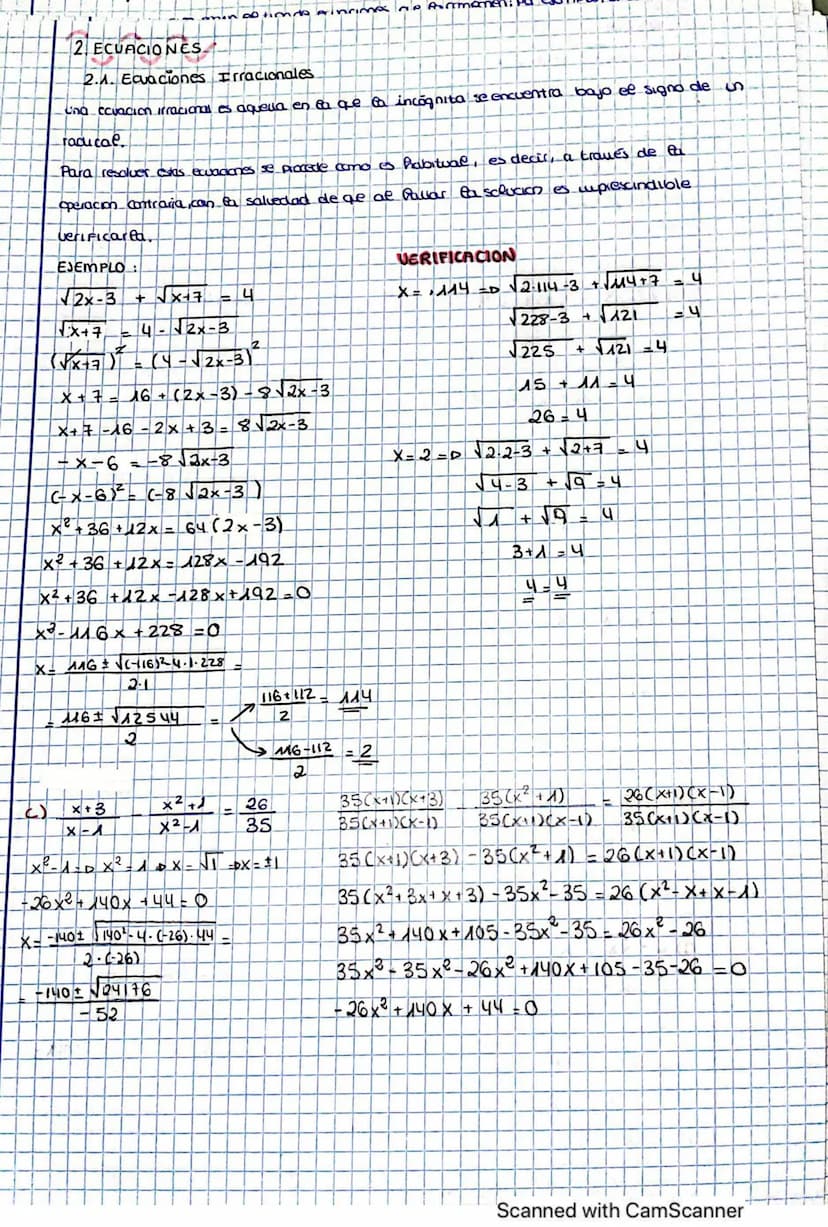 2. ECUACIONES.
2.1. Ecuaciones Irracionales
Una ecuacion irracional es aquella en la que la incógnita se encuentra bajo el signo de un
radical.
Para resolver estas ecuaciones se procede como es habitual, es decir, a través de la
operacion contraria, con la salvedad de qe al hallar la solucion es imprescindible
verificarla.
EJEMPLO:
√(2x-3) + √(x+7) = 4
√(x+7) = 4 - √(2x-3)
(√(x+7))² = (4-√(2x-3))²
x+7 = 16 + (2x-3) - 8√(2x-3)
x+7-16-2x+3 = 8√(2x-3)
-x-6 = -8√(2x-3)
(-x-6)² = (-8√(2x-3))
x²+36+12x = 64(2x-3)
x²+36+12x = 128x-192
x²+36+12x-128x+192=0
x²-116x+228=0
x= (116±√((-116)²-4·1·228))/(2·1) =
= (116±√12544)/2 =
(116+112)/2 = 114
(116-112)/2 = 2
VERIFICACION
x=114 => √(2·114-3) + √(114+7) = 4
√(228-3) + √121 = 4
√225 + √121 = 4
15 + 11 = 4
26 = 4
x=2 => √(2·2-3) + √(2+7) = 4
√(4-3) + √9 = 4
√1 + √9 = 4
3+1 = 4
4 = 4
c) (x+3)/(x-1) - (x²+1)/(x²-1) = 26/35
x²-1 => x²=1 => x=√1 => x=±1
-26x²+140x+44=0
x= (-140±√(140²-4·(-26)·44))/(2·(-26)) =
= (-140±√24176)/(-52)
35(x+1)(x+3)/35(x+1)(x-1) - 35(x²+1)/35(x+1)(x-1) = 26(x+1)(x-1)/35(x+1)(x-1)
35(x+1)(x+3) - 35(x²+1) = 26(x+1)(x-1)
35(x²+3x+x+3) - 35x²-35 = 26(x²-x+x-1)
35x²+140x+105-35x²-35 = 26x²-26
35x²-35x²-26x²+140x+105-35-26 = 0
-26x²+140x+44=0
Scanned with CamScanner